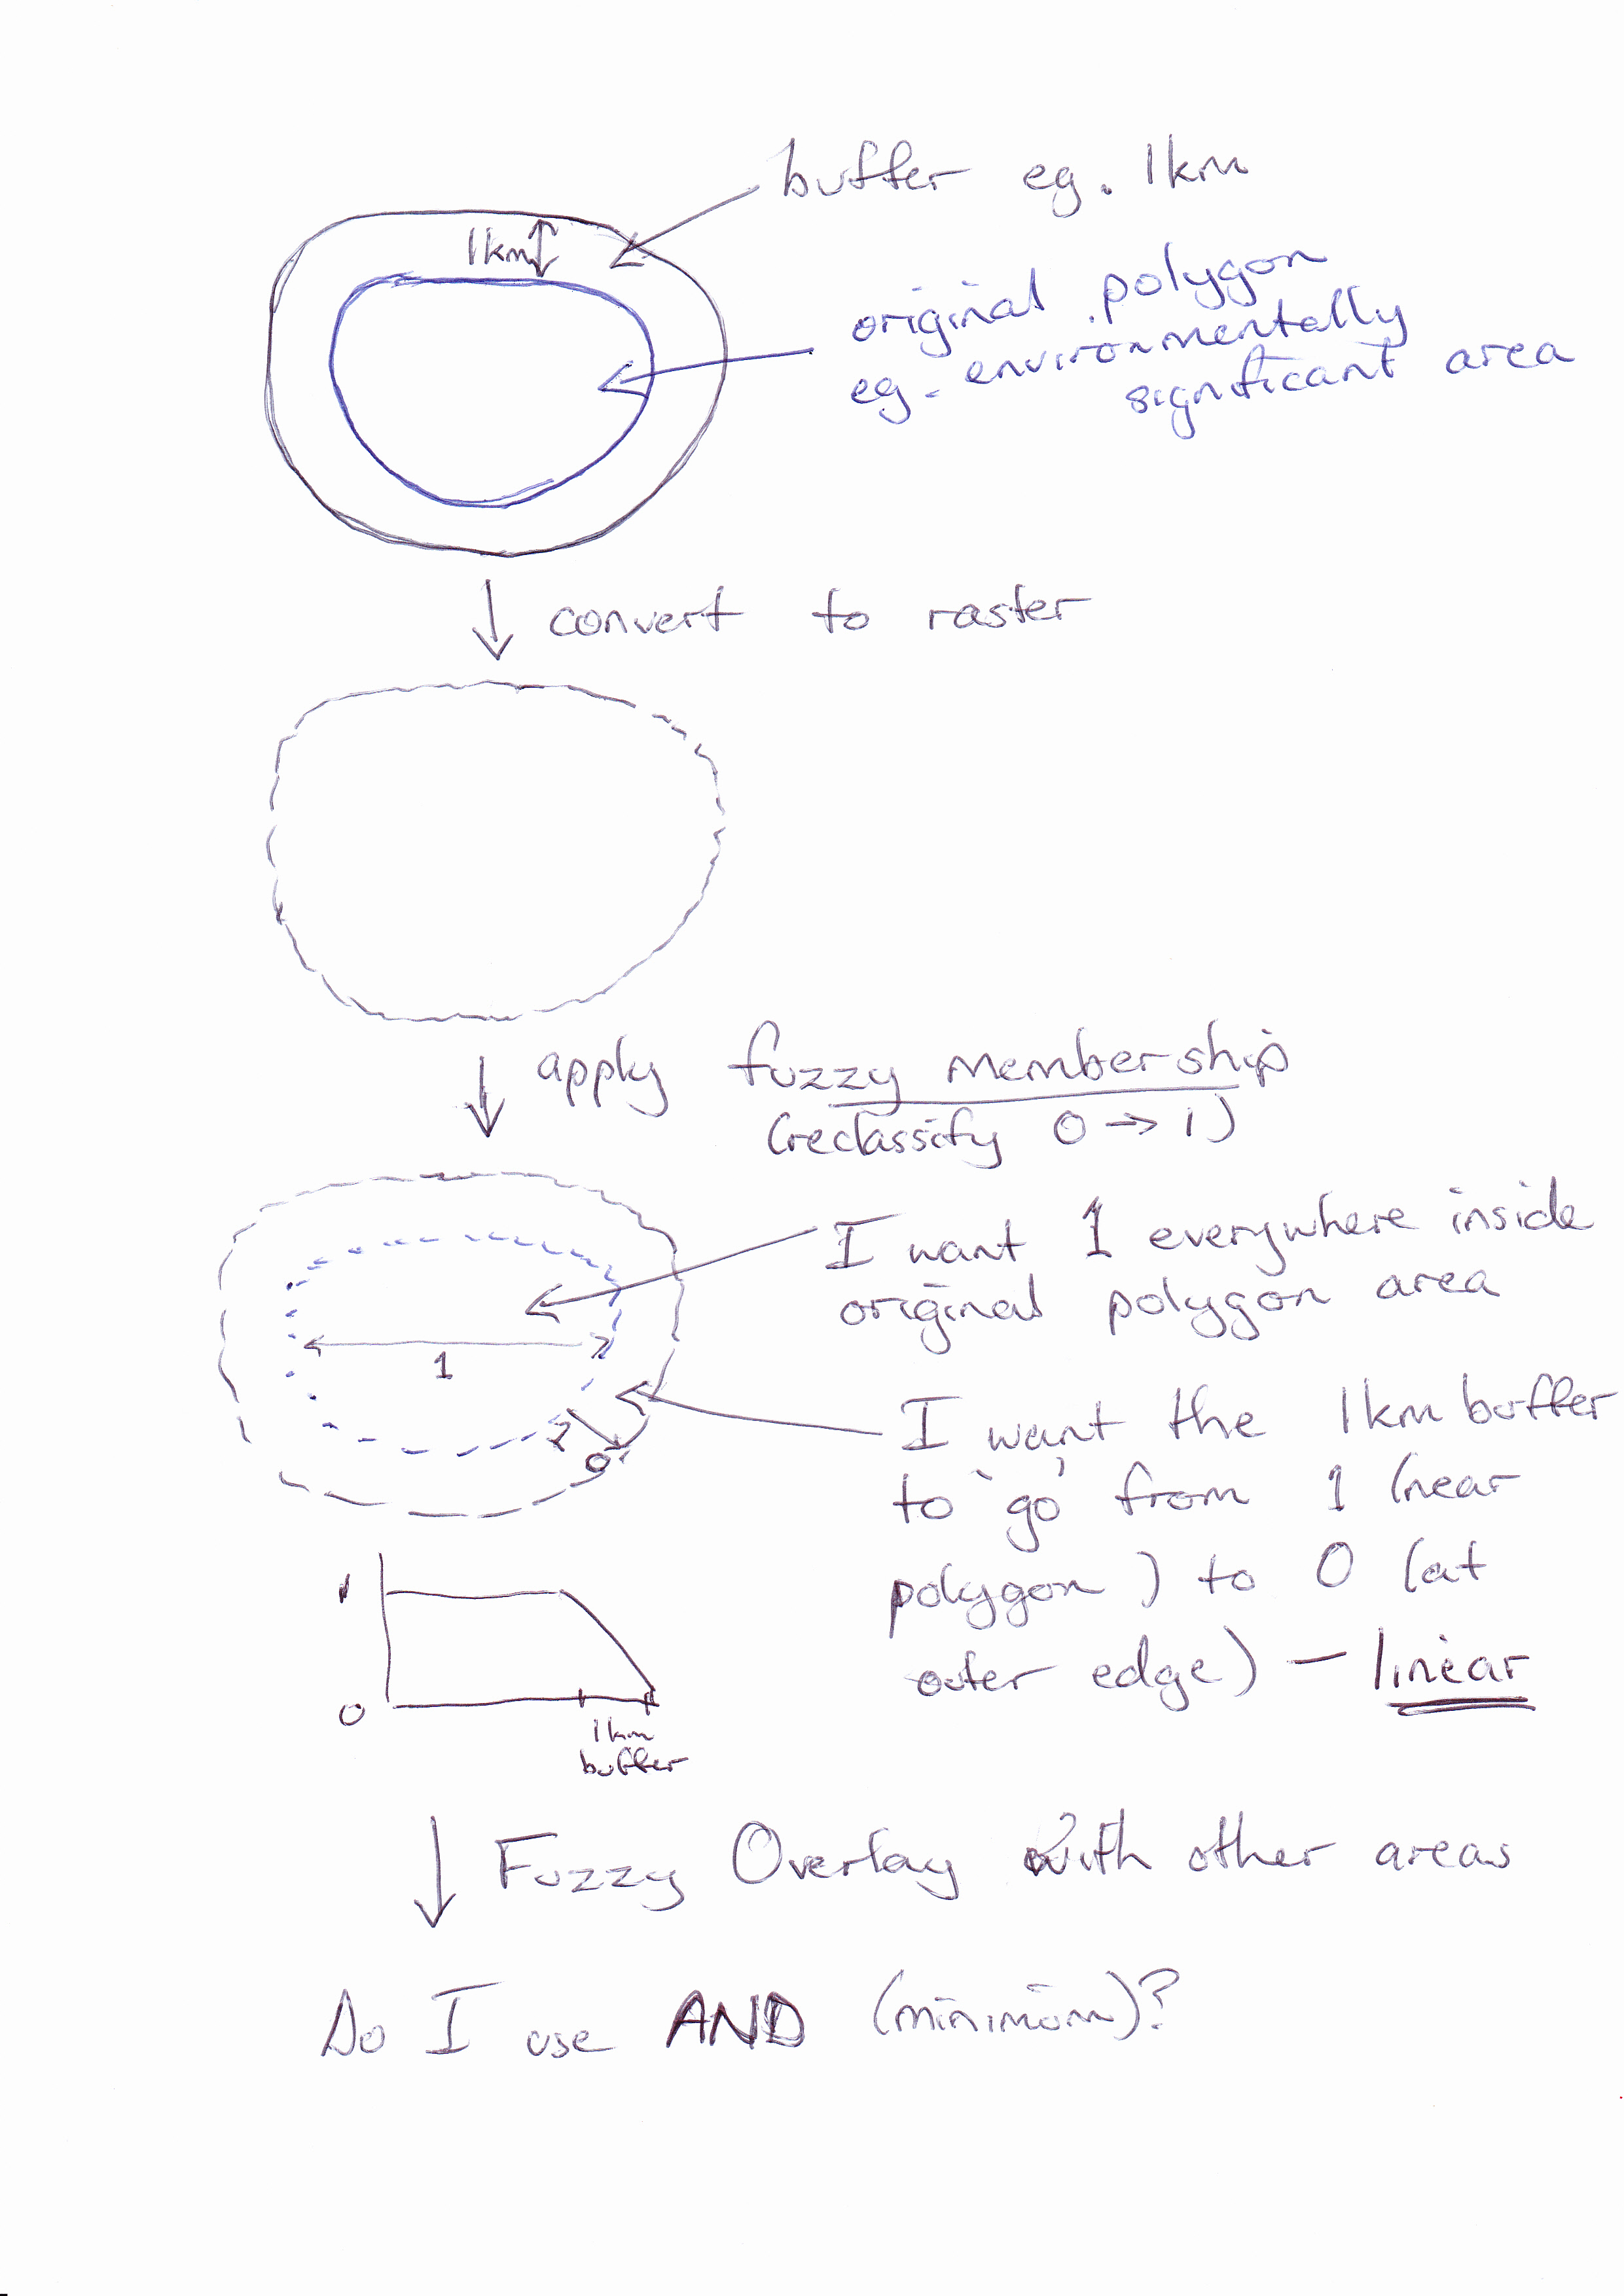 buffer eg. 1km
1km
original polygon
eg. environmentally
significant area
convert to raster
apply fuzzy membership
(reclassify 0 → 1)
I want 1 everywhere inside
original polygon area
1
I want the 1km buffer
to 'go' from 1 (near
polygon) to 0 (at
outer edge) – linear
1
0
1
0
1km
buffer
Fuzzy Overlay with other areas
Do I use AND (minimum)?